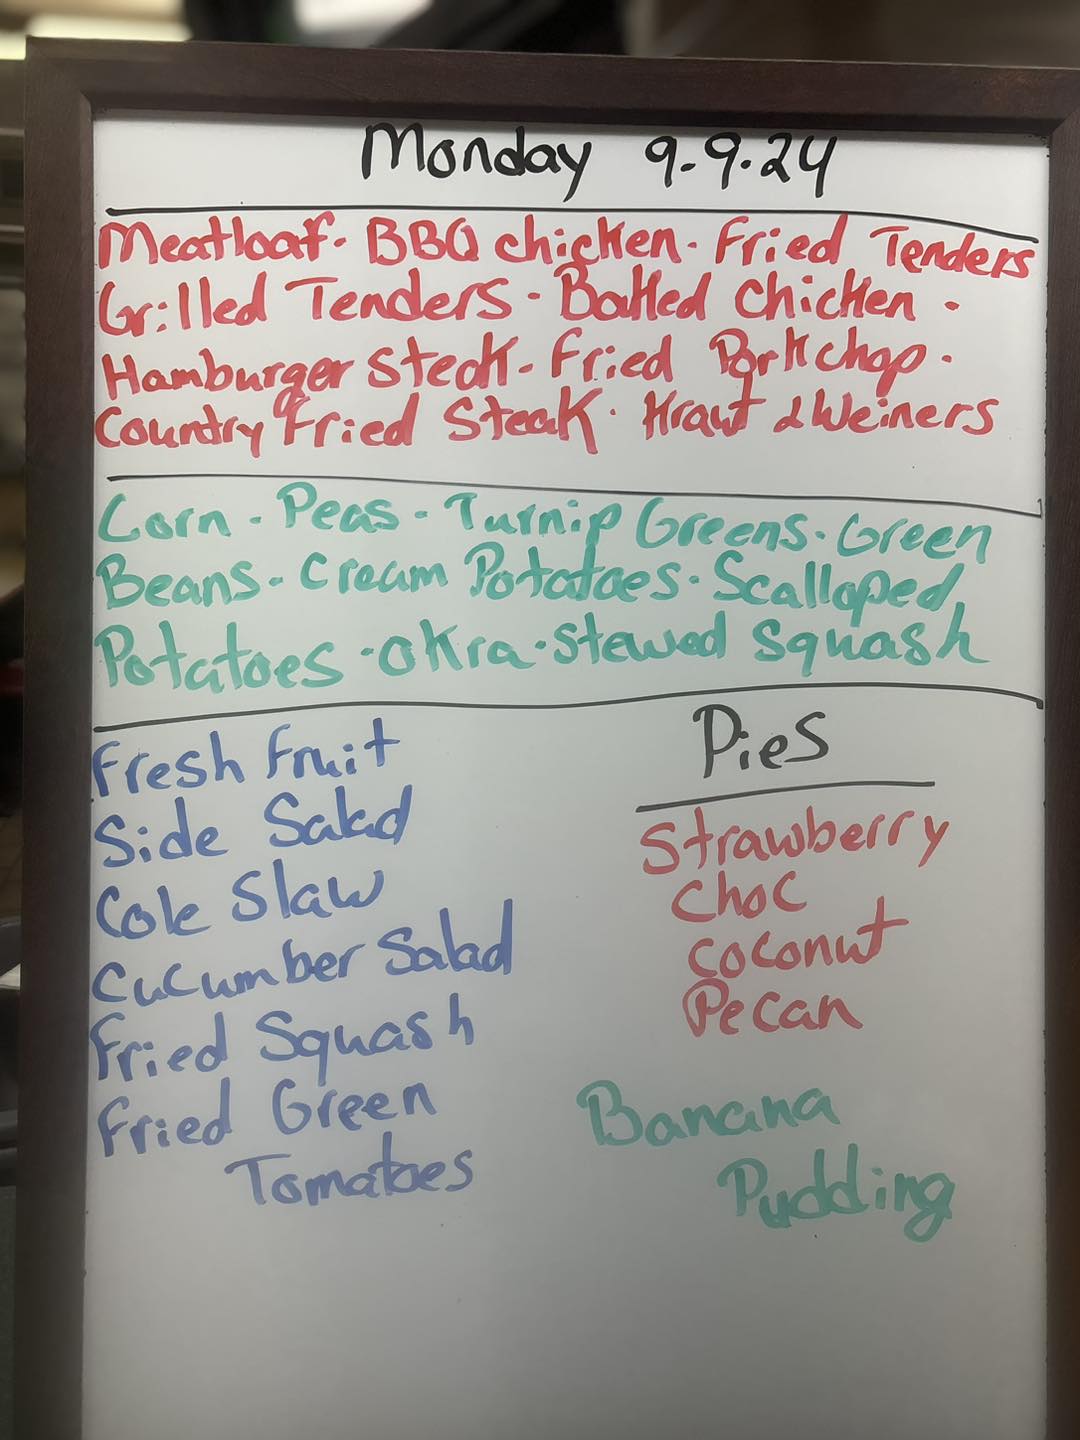 Monday 9-9-24
Meatloaf. BBQ chicken. Fried Tenders
Grilled Tenders. Baked Chicken.
Hamburger Steak. Fried Porkchop.
Country Fried Steak. Kraut & Weiners
Corn. Peas. Turnip Greens. Green
Beans. Cream Potatoes. Scalloped
Potatoes. Okra. Stewed Squash
Fresh Fruit
Side Salad
Cole Slaw
Cucumber Salad
Fried Squash
Fried Green
Tomatoes
Pies
Strawberry
Choc
Coconut
Pecan
Banana
Pudding